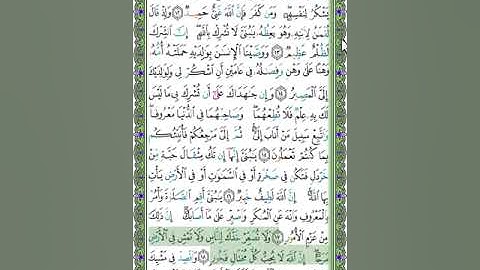 يَشْكُرُ لِنَفْسِهِۦ ۖ وَمَن كَفَرَ فَإِنَّ ٱللَّهَ غَنِىٌّ حَمِيدٌ ١٢ وَإِذْ قَالَ
لُقْمَٰنُ لِٱبْنِهِۦ وَهُوَ يَعِظُهُۥ يَٰبُنَىَّ لَا تُشْرِكْ بِٱللَّهِ ۖ إِنَّ ٱلشِّرْكَ
لَظُلْمٌ عَظِيمٌ ١٣ وَوَصَّيْنَا ٱلْإِنسَٰنَ بِوَٰلِدَيْهِ حَمَلَتْهُ أُمُّهُۥ
وَهْنًا عَلَىٰ وَهْنٍ وَفِصَٰلُهُۥ فِى عَامَيْنِ أَنِ ٱشْكُرْ لِى وَلِوَٰلِدَيْكَ
إِلَىَّ ٱلْمَصِيرُ ١٤ وَإِن جَٰهَدَاكَ عَلَىٰٓ أَن تُشْرِكَ بِى مَا لَيْسَ
لَكَ بِهِۦ عِلْمٌ فَلَا تُطِعْهُمَا ۖ وَصَاحِبْهُمَا فِى ٱلدُّنْيَا مَعْرُوفًا ۖ
وَٱتَّبِعْ سَبِيلَ مَنْ أَنَابَ إِلَىَّ ۚ ثُمَّ إِلَىَّ مَرْجِعُكُمْ فَأُنَبِّئُكُم
بِمَا كُنتُمْ تَعْمَلُونَ ١٥ يَٰبُنَىَّ إِنَّهَآ إِن تَكُ مِثْقَالَ حَبَّةٍ مِّنْ
خَرْدَلٍ فَتَكُن فِى صَخْرَةٍ أَوْ فِى ٱلسَّمَٰوَٰتِ أَوْ فِى ٱلْأَرْضِ يَأْتِ
بِهَا ٱللَّهُ ۚ إِنَّ ٱللَّهَ لَطِيفٌ خَبِيرٌ ١٦ يَٰبُنَىَّ أَقِمِ ٱلصَّلَوٰةَ وَأْمُرْ
بِٱلْمَعْرُوفِ وَٱنْهَ عَنِ ٱلْمُنكَرِ وَٱصْبِرْ عَلَىٰ مَآ أَصَابَكَ ۖ إِنَّ ذَٰلِكَ
مِنْ عَزْمِ ٱلْأُمُورِ ١٧ وَلَا تُصَعِّرْ خَدَّكَ لِلنَّاسِ وَلَا تَمْشِ فِى ٱلْأَرْضِ
مَرَحًا ۖ إِنَّ ٱللَّهَ لَا يُحِبُّ كُلَّ مُخْتَالٍ فَخُورٍ ١٨ وَٱقْصِدْ فِى مَشْيِكَ